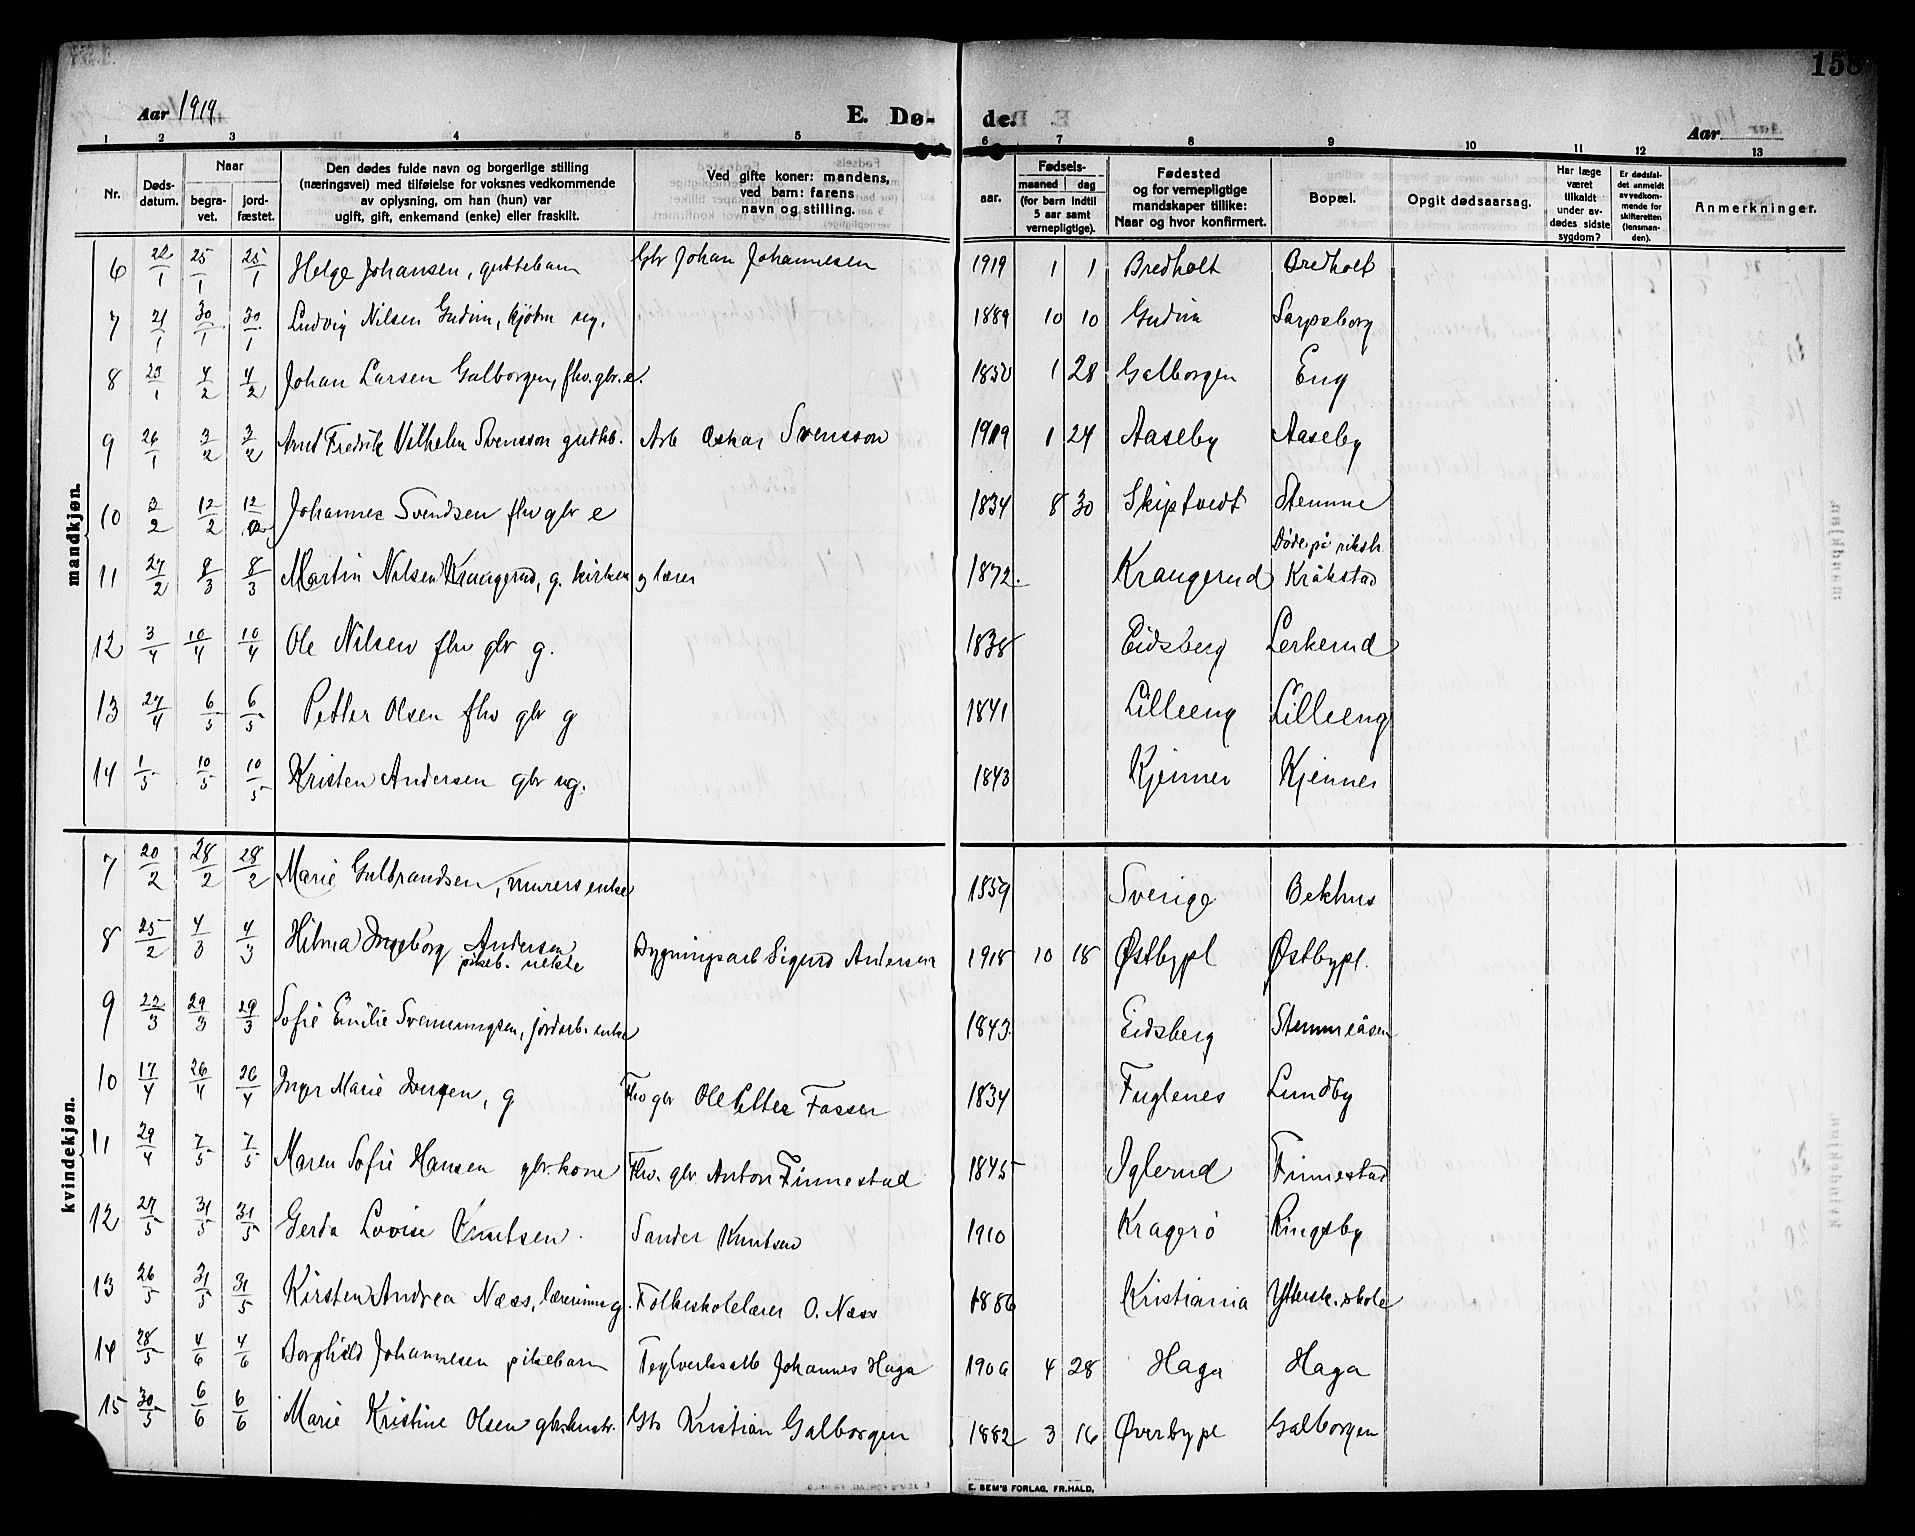 158
Aar 1919
E. Dø-
de.
Aar
1 2 3 4 5 6 7 8 9 10 11 12 13
Nr.
Døds-
datum.
Naar
begra-
vet.
jord-
fæstet.
Den dødes fulde navn og borgerlige stilling
(næringsvei) med tilføielse for voksnes vedkommende
av oplysning, om han (hun) var
ugift, gift, enkemand (enke) eller fraskilt.
Ved gifte koner: mandens,
ved barn: farens
navn og stilling.
aar.
Fødsels-
maaned dag
(for barn indtil
5 aar samt
vernepligtige).
Fødested
og for vernepligtige
mandskaper tillike:
Naar og hvor konfirmert.
Bopæl.
Opgit dødsaarsag.
Har læge
været
tilkaldt
under av-
dødes sidste
sygdom?
Er dødsfal-
det anmeldt
av vedkom-
mende for
skifteretten
(lensman-
den).
Anmerkninger.
mandkjøn.
6 22/1 25/1 25/1 Helge Johansen, guttebarn Gbr Johan Johannesen 1919 1 1 Bredholt Bredholt
7 21/1 30/1 30/1 Ludvig Nilsen Gudim, kjøbm ug. 1889 10 10 Gudim Sarpsborg
8 23/1 4/2 4/2 Johan Larsen Galborgen, fhv. gbr. e. 1850 1 28 Galborgen Eng
9 26/1 3/2 3/2 Arnt Fredrik Vilhelm Svensson gutteb. Arb Oskar Svensson 1919 1 24 Aaseby Aaseby
10 3/2 12/2 12/2 Johannes Svendsen fhv gbr e 1834 8 30 Skiptvedt Stemme
Døde på riksh.
11 27/2 8/3 8/3 Martin Nilsen Krangerud, g. kirkesanglærer 1872 Krangerud Kråkstad
12 3/4 10/4 10/4 Ole Nilsen fhv gbr g. 1838 Eidsberg Lerkerud
13 27/4 6/5 6/5 Petter Olsen fhv gbr g 1841 Lilleeng Lilleeng
14 1/5 10/5 10/5 Kristen Andersen gbr ug. 1843 Kjennes Kjennes
kvindekjøn.
7 20/2 28/2 28/2 Marie Gulbrandsen, murers enke 1859 Sverige Bekhus
8 25/2 4/3 4/3 Hilma Ingeborg Andersen Bygningsarb Sigurd Andersen 1918 10 18 Østbypl Østbypl.
pikeb. uekte
9 22/3 29/3 29/3 Sofie Emilie Svenningsen, jordarb. enke 1843 Eidsberg Stemmeåsen
10 17/4 26/4 26/4 Inger Marie, g Fhv gbr Ole Fosser 1834 Fuglenes Lundby
11 29/4 7/5 7/5 Maren Sofie Hansen gbr. kone Fhv. gbr Anton Finnestad 1845 Iglerud Finnestad
12 27/5 31/5 31/5 Gerda Lovise Knutsen. Sander Knutsen 1910 Kragerø Ringsby
13 26/5 31/5 31/5 Kirsten Andrea Næss, lærerinne g. Folkeskolelærer O. Næss 1886 Kristiania Yttersk. skole
14 28/5 4/6 4/6 Borghild Johannesen pikebarn Teglverksarb Johannes Haga 1906 4 28 Haga Haga
15 30/5 6/6 6/6 Marie Kristine Olsen gbr. hustr. Gbr Kristian Galborgen 1882 3 16 Øverbypl Galborgen
E. SEM'S FORLAG, FR.HALD,